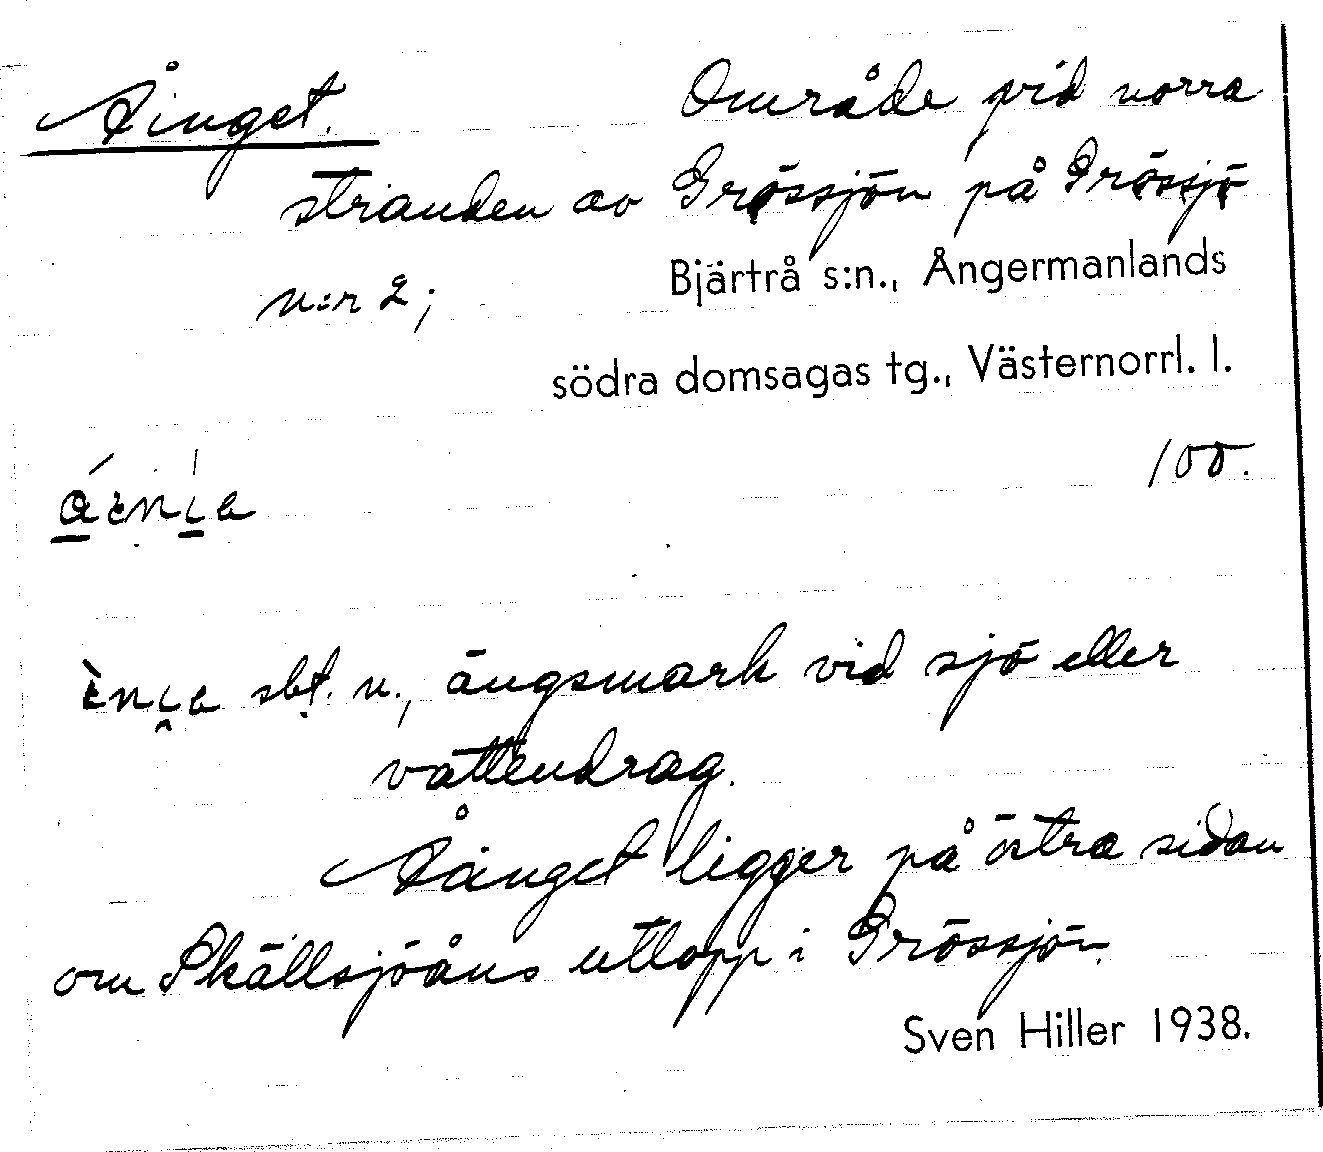 Åinget. Område vid norra
stranden av Grössjön på Grössjö
n:r 2;
Bjärtrå s:n., Ångermanlands
södra domsagas tg., Västernorrl. l.
100.
sbt. n., ängsmark vid sjö eller
vattendrag.
Åänget ligger på östra sidan
om Skällsjöåns utlopp i Grössjön.
Sven Hiller 1938.